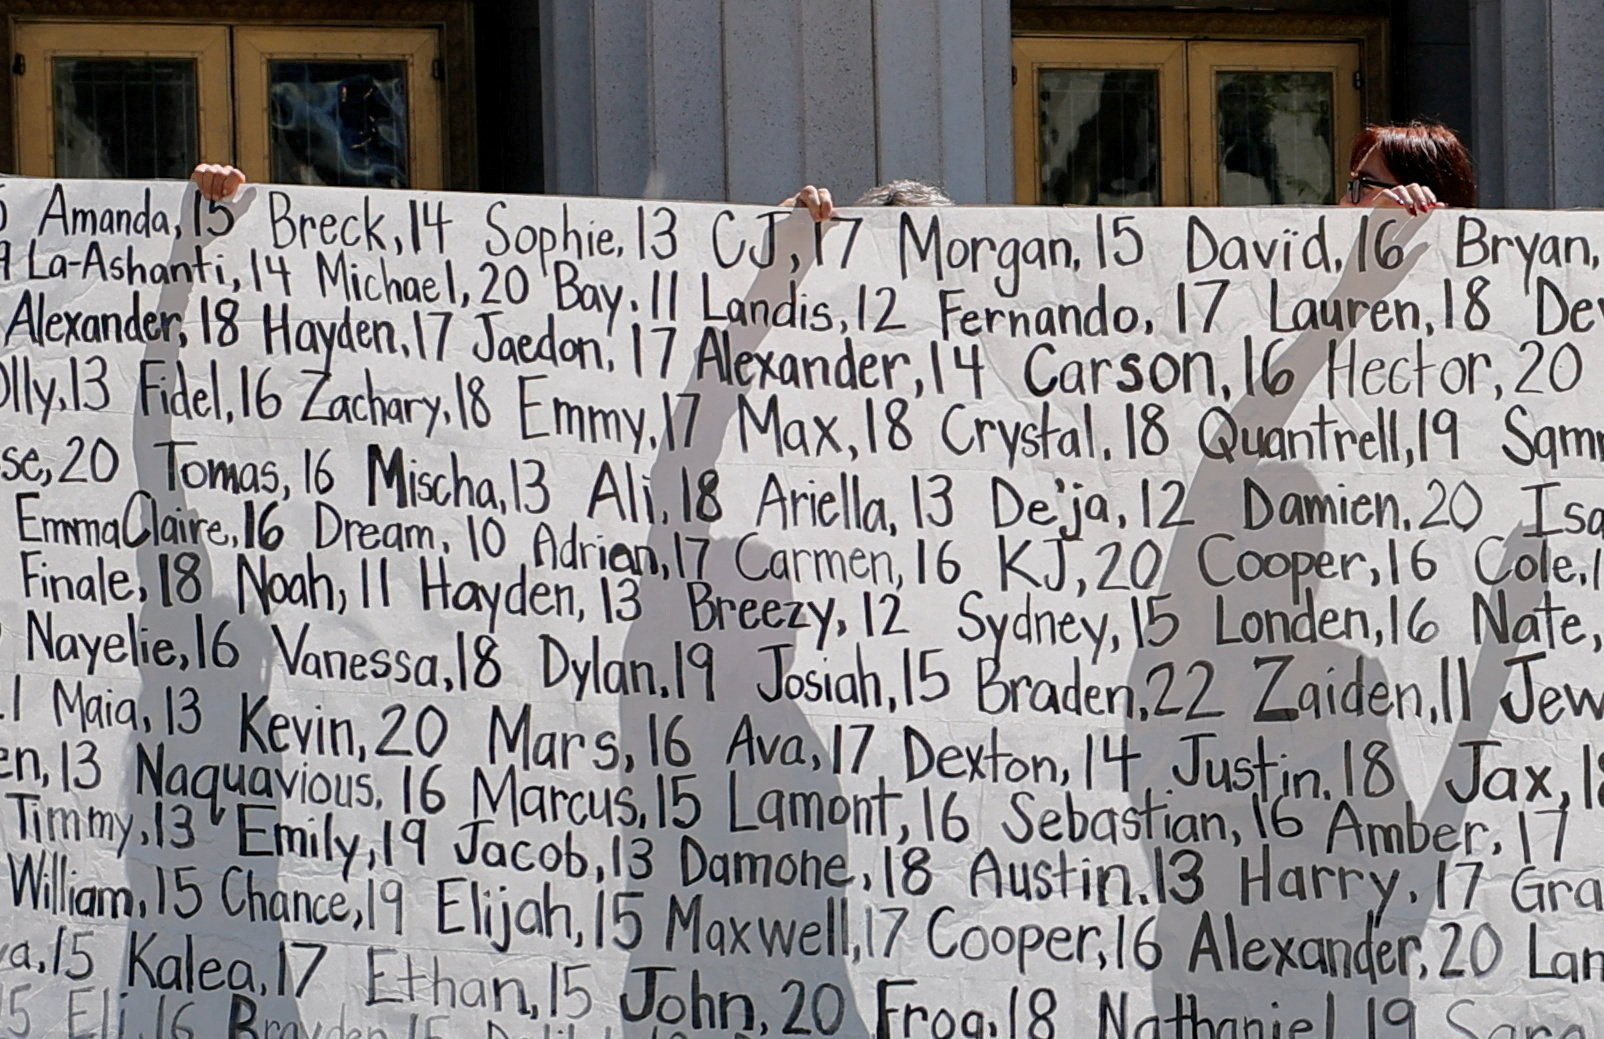 Amanda, 15 Breck, 14 Sophie, 13 CJ, 17 Morgan, 15 Davïd, 16 Bryan,
La-Ashanti, 14 Michael, 20 Bay, 11 Landis, 12 Fernando, 17 Lauren, 18
Alexander, 18 Hayden, 17 Jaedon, 17 Alexander, 14 Carson, 16 Hector, 20
13 Fidel, 16 Zachary, 18 Emmy, 17 Max, 18 Crystal, 18 Quantrell, 19
20 Tomas, 16 Mischa, 13 Ali, 18 Ariella, 13 De'ja, 12 Damien, 20
EmmaClaire, 16 Dream, 10 Adrian, 17 Carmen, 16 KJ, 20 Cooper, 16 Cole,
Finale, 18 Noah, 11 Hayden, 13 Breezy, 12 Sydney, 15 Londen, 16 Nate,
Nayelie, 16 Vanessa, 18 Dylan, 19 Josiah, 15 Braden, 22 Zaiden, 11 Jew
Maia, 13 Kevin, 20 Mars, 16 Ava, 17 Dexton, 14 Justin, 18 Jax, 18
en, 13 Naquavious, 16 Marcus, 15 Lamont, 16 Sebastian, 16 Amber, 17
Timmy, 13 Emily, 19 Jacob, 13 Damone, 18 Austin, 13 Harry, 17 Gra
William, 15 Chance, 19 Elijah, 15 Maxwell, 17 Cooper, 16 Alexander, 20 Lan
a, 15 Kalea, 17 Ethan, 15 John, 20 Frog, 18 Nathaniel, 19
15 Eli, 16 Brayden, 15